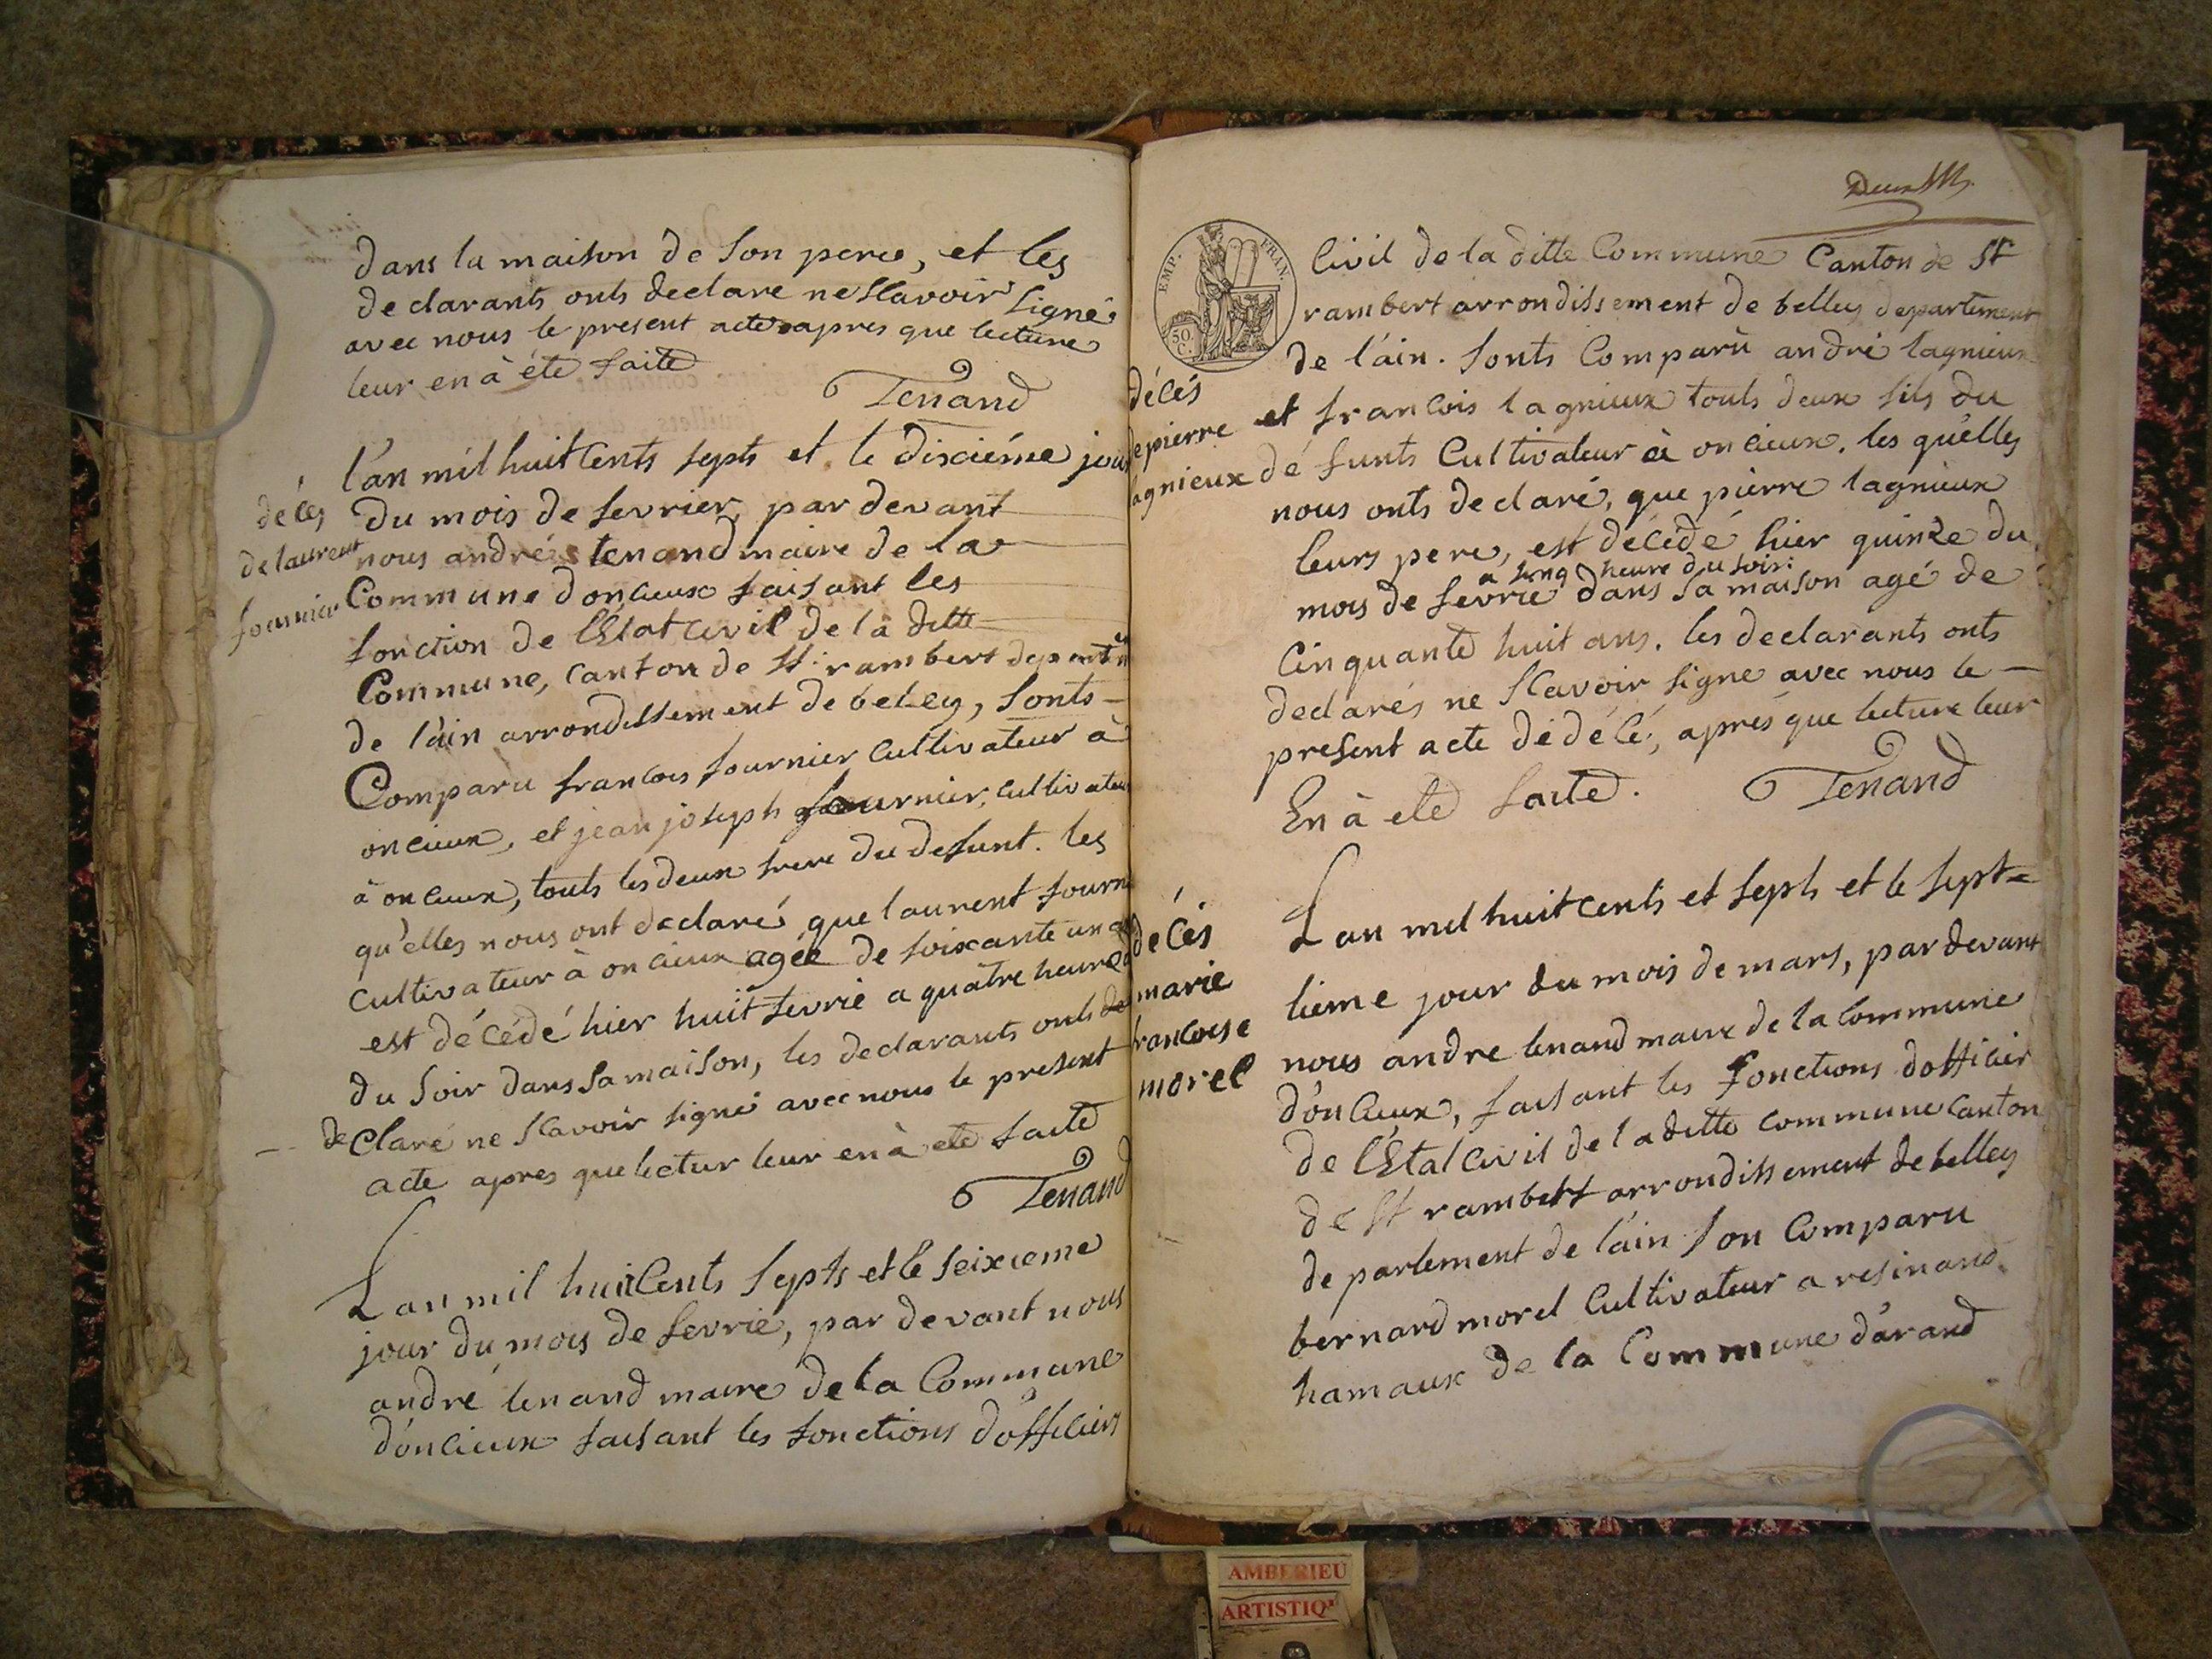 dans la maison de son pere, et les
declarants onts declare ne sçavoir signé
avec nous le present acte apres que lecture
leur en à éte faite
Tenand
décés
de laurent
fournier
l'an mil huit Cents septs et le dixiéme jour
du mois de fevrier, par devant
nous andré tenand maire de la
Commune donlieux faisant les
fonction de l'Etat Civil de la ditte
Commune, canton de St. rambert departem
de l'ain arrondissement de beley, sonts
Comparu francois fournier Cultivateur à
onlieux, et jean joseph fournier, Cultivateur
à onlieux, touts les deux frere du defunt. les
qu'elles nous ont declaré que laurent fourni
Cultivateur à onlieux agée de soixante un
est décédé hier huit fevrié a quâtre heure
du soir dans sa maison, les declarants onts de
de Claré ne sçavoir signé avec nous le present
acte apres que lectur leur en à eté faite
Tenand
L an mil huit Cents septs et le seixieme
jour du mois de fevrié, par devant nous
andré tenand maire de la Commune
d'onlieux faisant les fonctions d'officiers
EMP. FRAN.
50 C.
Civil de la ditte Commune Canton de St
rambert arrondissement de belley departement
de l'ain. sonts Comparù andré lagnieux
décés
de pierre
lagnieux
et francois lagnieux touts deux fils du
défunts Cultivateur à onlieux. les qu'elles
nous onts declaré, que pierre lagnieux
leurs pere, est décédé hier quinze du
a sinq heure du soir.
mois de fevrié dans sa maison agé de
Cinquante huit ans. les declarants onts
declarés ne sçavoir signe avec nous le
present acte de décé, aprés que lecture leur
En à eté faite.
Tenand
décés
marie
francoise
morel
L an mil huit cents et septs et le sept=
tieme jour du mois de mars, par devant
nous andre tenand maire de la Commune
d'onlieux, faisant les fonctions dofficier
de l'Etat Civil de la ditte commune Canton
de St rambert arrondissement de belley
departement de l'ain son Comparu
bernard morel Cultivateur a resinand
hamaux de la Commune d'arand
AMBERIEU
ARTISTIQ